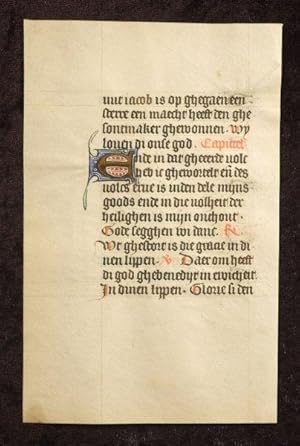 wut iacob is op ghegaen een
sterre een maecht heeft den ghe
sontmaker ghewonnen. Wy
louen di onse god. Capittel
Ende in dat gheeerde volc
heb ic ghewortelt eñ des
volcs erue is inden dele mijns
goods ende in die volheit der
heilighen is mijn onthout.
Gode segghen wi danc. R.
Wt ghestort is die gracie in di
nen lippen. V. Daer om heeft
di god ghebenedijt in ewicheit.
In dinen lippen. Glorie si den